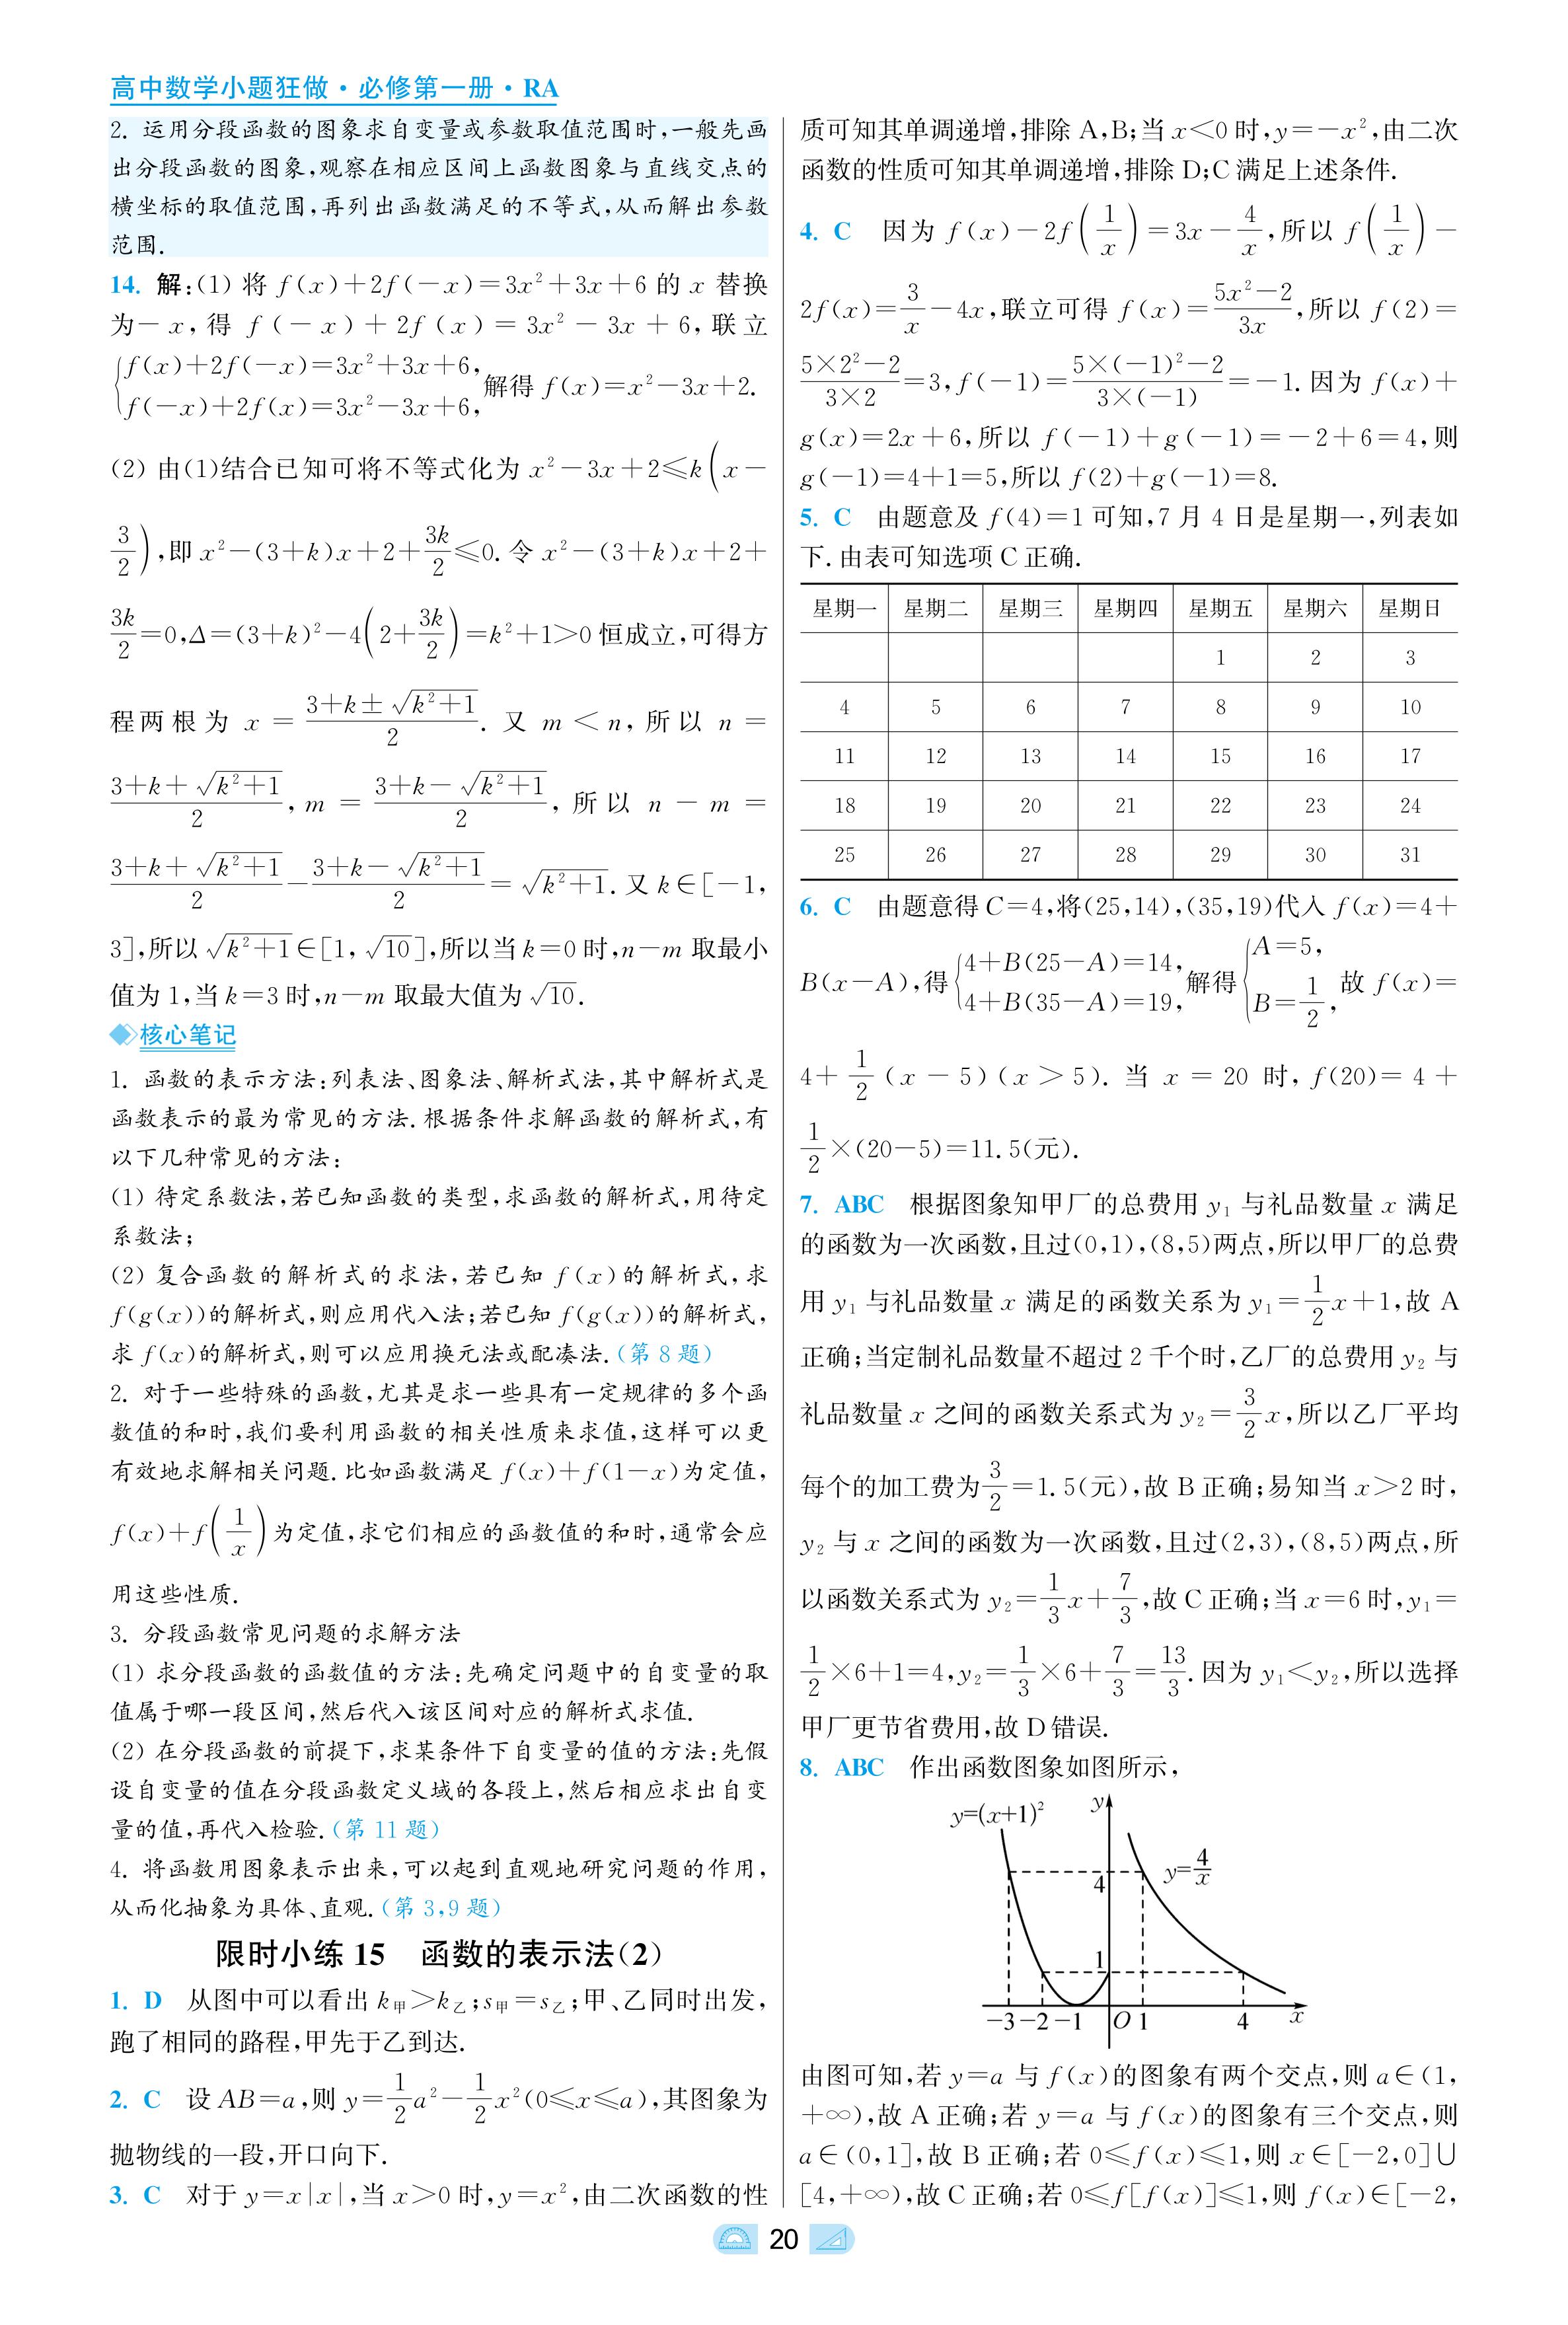 高中数学小题狂做·必修第一册·RA
2. 运用分段函数的图象求自变量或参数取值范围时,一般先画
出分段函数的图象,观察在相应区间上函数图象与直线交点的
横坐标的取值范围,再列出函数满足的不等式,从而解出参数
范围.
14. 解:(1) 将 f(x)+2f(-x)=3x²+3x+6 的 x 替换
为-x,得 f(-x)+2f(x)=3x²-3x+6,联立
{f(x)+2f(-x)=3x²+3x+6,
f(-x)+2f(x)=3x²-3x+6,解得 f(x)=x²-3x+2.
(2) 由(1)结合已知可将不等式化为 x²-3x+2≤k(x-
3/2),即 x²-(3+k)x+2+3k/2≤0.令 x²-(3+k)x+2+
3k/2=0,Δ=(3+k)²-4(2+3k/2)=k²+1>0 恒成立,可得方
程两根为 x=(3+k±√(k²+1))/2. 又 m<n,所以 n=
(3+k+√(k²+1))/2,m=(3+k-√(k²+1))/2,所以 n-m=
(3+k+√(k²+1))/2-(3+k-√(k²+1))/2=√(k²+1).又 k∈[-1,
3],所以√(k²+1)∈[1,√10],所以当 k=0 时,n-m 取最小
值为 1,当 k=3 时,n-m 取最大值为√10.
核心笔记
1. 函数的表示方法:列表法、图象法、解析式法,其中解析式是
函数表示的最为常见的方法.根据条件求解函数的解析式,有
以下几种常见的方法:
(1) 待定系数法,若已知函数的类型,求函数的解析式,用待定
系数法;
(2) 复合函数的解析式的求法,若已知 f(x)的解析式,求
f(g(x))的解析式,则应用代入法;若已知 f(g(x))的解析式,
求 f(x)的解析式,则可以应用换元法或配凑法.(第 8 题)
2. 对于一些特殊的函数,尤其是求一些具有一定规律的多个函
数值的和时,我们要利用函数的相关性质来求值,这样可以更
有效地求解相关问题.比如函数满足 f(x)+f(1-x)为定值,
f(x)+f(1/x)为定值,求它们相应的函数值的和时,通常会应
用这些性质.
3. 分段函数常见问题的求解方法
(1) 求分段函数的函数值的方法:先确定问题中的自变量的取
值属于哪一段区间,然后代入该区间对应的解析式求值.
(2) 在分段函数的前提下,求某条件下自变量的值的方法:先假
设自变量的值在分段函数定义域的各段上,然后相应求出自变
量的值,再代入检验.(第 11 题)
4. 将函数用图象表示出来,可以起到直观地研究问题的作用,
从而化抽象为具体、直观.(第 3,9 题)
限时小练 15 函数的表示法(2)
1. D 从图中可以看出 k甲>k乙;s甲=s乙;甲、乙同时出发,
跑了相同的路程,甲先于乙到达.
2. C 设 AB=a,则 y=1/2a²-1/2x²(0≤x≤a),其图象为
抛物线的一段,开口向下.
3. C 对于 y=x|x|,当 x>0 时,y=x²,由二次函数的性
质可知其单调递增,排除 A,B;当 x<0 时,y=-x²,由二次
函数的性质可知其单调递增,排除 D;C 满足上述条件.
4. C 因为 f(x)-2f(1/x)=3x-4/x,所以 f(1/x)-
2f(x)=3/x-4x,联立可得 f(x)=(5x²-2)/3x,所以 f(2)=
(5×2²-2)/(3×2)=3,f(-1)=(5×(-1)²-2)/(3×(-1))=-1.因为 f(x)+
g(x)=2x+6,所以 f(-1)+g(-1)=-2+6=4,则
g(-1)=4+1=5,所以 f(2)+g(-1)=8.
5. C 由题意及 f(4)=1 可知,7 月 4 日是星期一,列表如
下.由表可知选项 C 正确.
星期一 星期二 星期三 星期四 星期五 星期六 星期日
1 2 3
4 5 6 7 8 9 10
11 12 13 14 15 16 17
18 19 20 21 22 23 24
25 26 27 28 29 30 31
6. C 由题意得 C=4,将(25,14),(35,19)代入 f(x)=4+
B(x-A),得{4+B(25-A)=14,4+B(35-A)=19,解得{A=5,B=1/2,故 f(x)=
4+1/2(x-5)(x>5). 当 x=20 时,f(20)=4+
1/2×(20-5)=11.5(元).
7. ABC 根据图象知甲厂的总费用 y₁ 与礼品数量 x 满足
的函数为一次函数,且过(0,1),(8,5)两点,所以甲厂的总费
用 y₁ 与礼品数量 x 满足的函数关系为 y₁=1/2x+1,故 A
正确;当定制礼品数量不超过 2 千个时,乙厂的总费用 y₂ 与
礼品数量 x 之间的函数关系式为 y₂=3/2x,所以乙厂平均
每个的加工费为3/2=1.5(元),故 B 正确;易知当 x>2 时,
y₂ 与 x 之间的函数为一次函数,且过(2,3),(8,5)两点,所
以函数关系式为 y₂=1/3x+7/3,故 C 正确;当 x=6 时,y₁=
1/2×6+1=4,y₂=1/3×6+7/3=13/3.因为 y₁<y₂,所以选择
甲厂更节省费用,故 D 错误.
8. ABC 作出函数图象如图所示,
y=(x+1)² y
y=4/x
4
1
-3 -2 -1 O 1 4 x
由图可知,若 y=a 与 f(x)的图象有两个交点,则 a∈(1,
+∞),故 A 正确;若 y=a 与 f(x)的图象有三个交点,则
a∈(0,1],故 B 正确;若 0≤f(x)≤1,则 x∈[-2,0]∪
[4,+∞),故 C 正确;若 0≤f[f(x)]≤1,则 f(x)∈[-2,
20